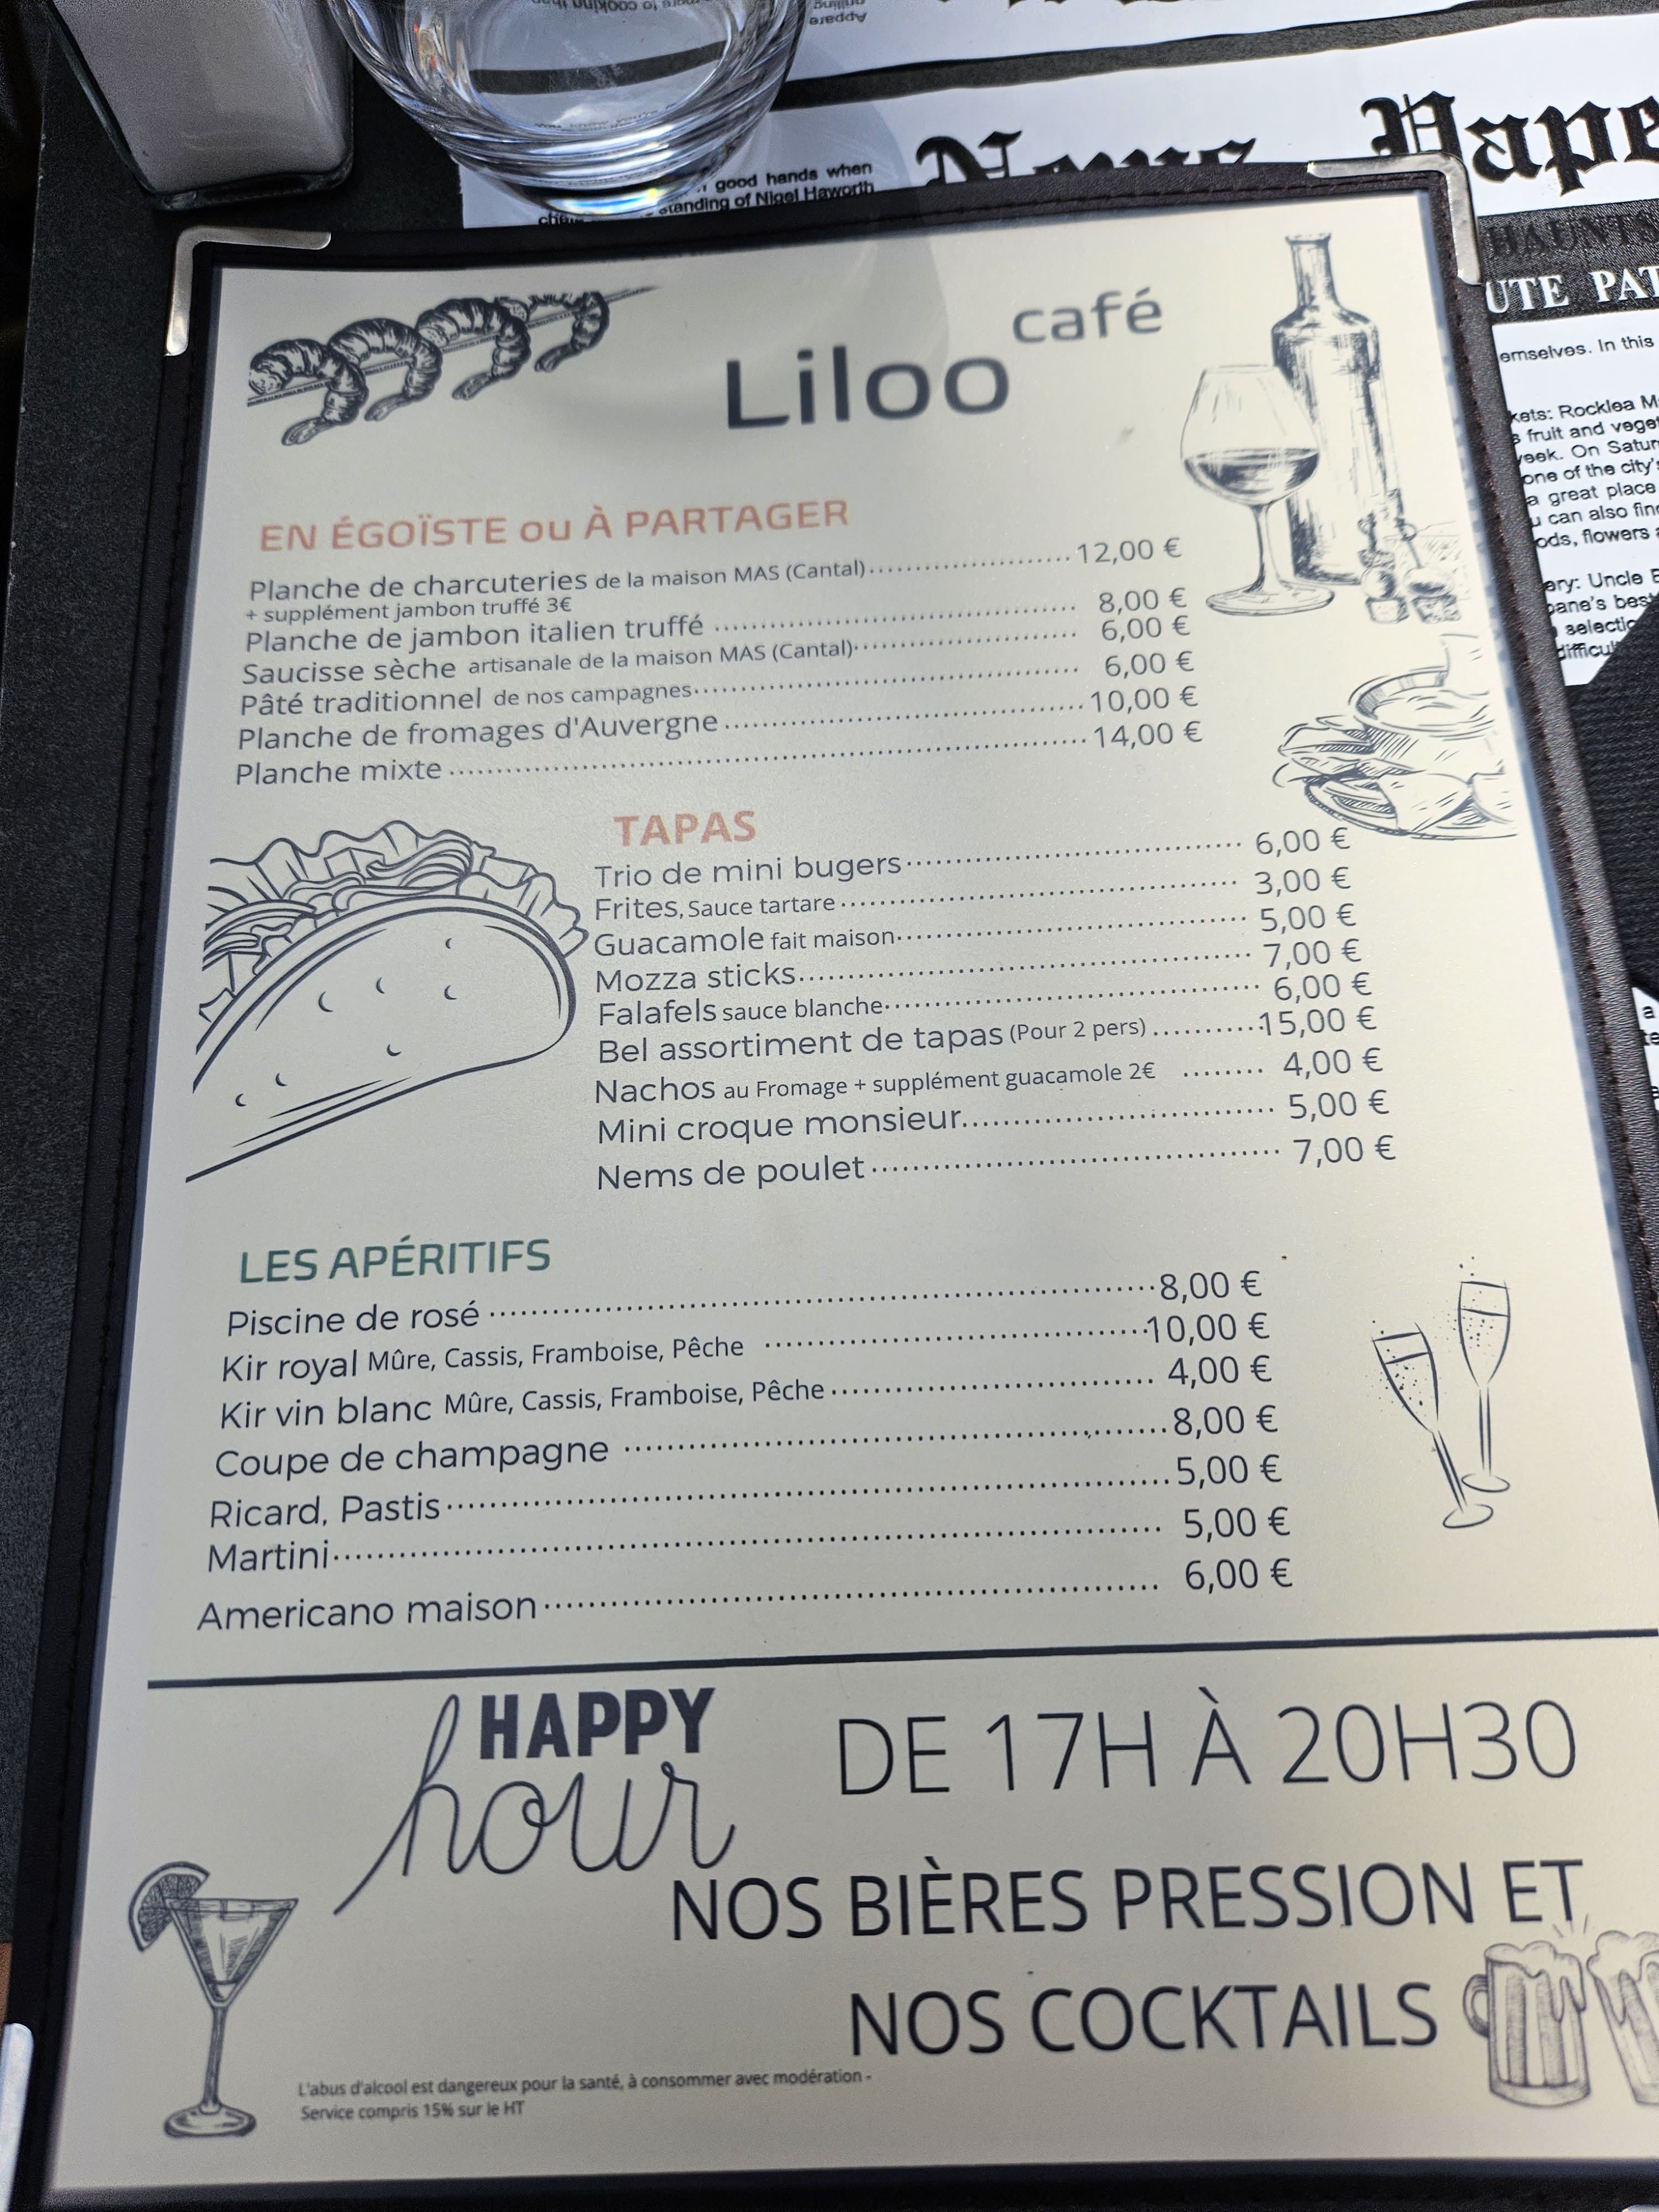 good hands when
standing of Nigel Haworth
News Pape
HAUNTS
UTE PAT
emselves. In this
kets: Rocklea M
s fruit and veget
week. On Satur
one of the city's
a great place
u can also find
ods, flowers a
ery: Uncle B
bane's best
selectio
difficul
café
Liloo
EN ÉGOÏSTE ou À PARTAGER
Planche de charcuteries de la maison MAS (Cantal) 12,00 €
+ supplément jambon truffé 3€
Planche de jambon italien truffé 8,00 €
Saucisse sèche artisanale de la maison MAS (Cantal) 6,00 €
Pâté traditionnel de nos campagnes 6,00 €
Planche de fromages d'Auvergne 10,00 €
Planche mixte 14,00 €
TAPAS
Trio de mini bugers 6,00 €
Frites, Sauce tartare 3,00 €
Guacamole fait maison 5,00 €
Mozza sticks 7,00 €
Falafels sauce blanche 6,00 €
Bel assortiment de tapas (Pour 2 pers) 15,00 €
Nachos au Fromage + supplément guacamole 2€ 4,00 €
Mini croque monsieur 5,00 €
Nems de poulet 7,00 €
LES APÉRITIFS
Piscine de rosé 8,00 €
Kir royal Mûre, Cassis, Framboise, Pêche 10,00 €
Kir vin blanc Mûre, Cassis, Framboise, Pêche 4,00 €
Coupe de champagne 8,00 €
Ricard, Pastis 5,00 €
Martini 5,00 €
Americano maison 6,00 €
HAPPY
hour
DE 17H À 20H30
NOS BIÈRES PRESSION ET
NOS COCKTAILS
L'abus d'alcool est dangereux pour la santé, à consommer avec modération -
Service compris 15% sur le HT